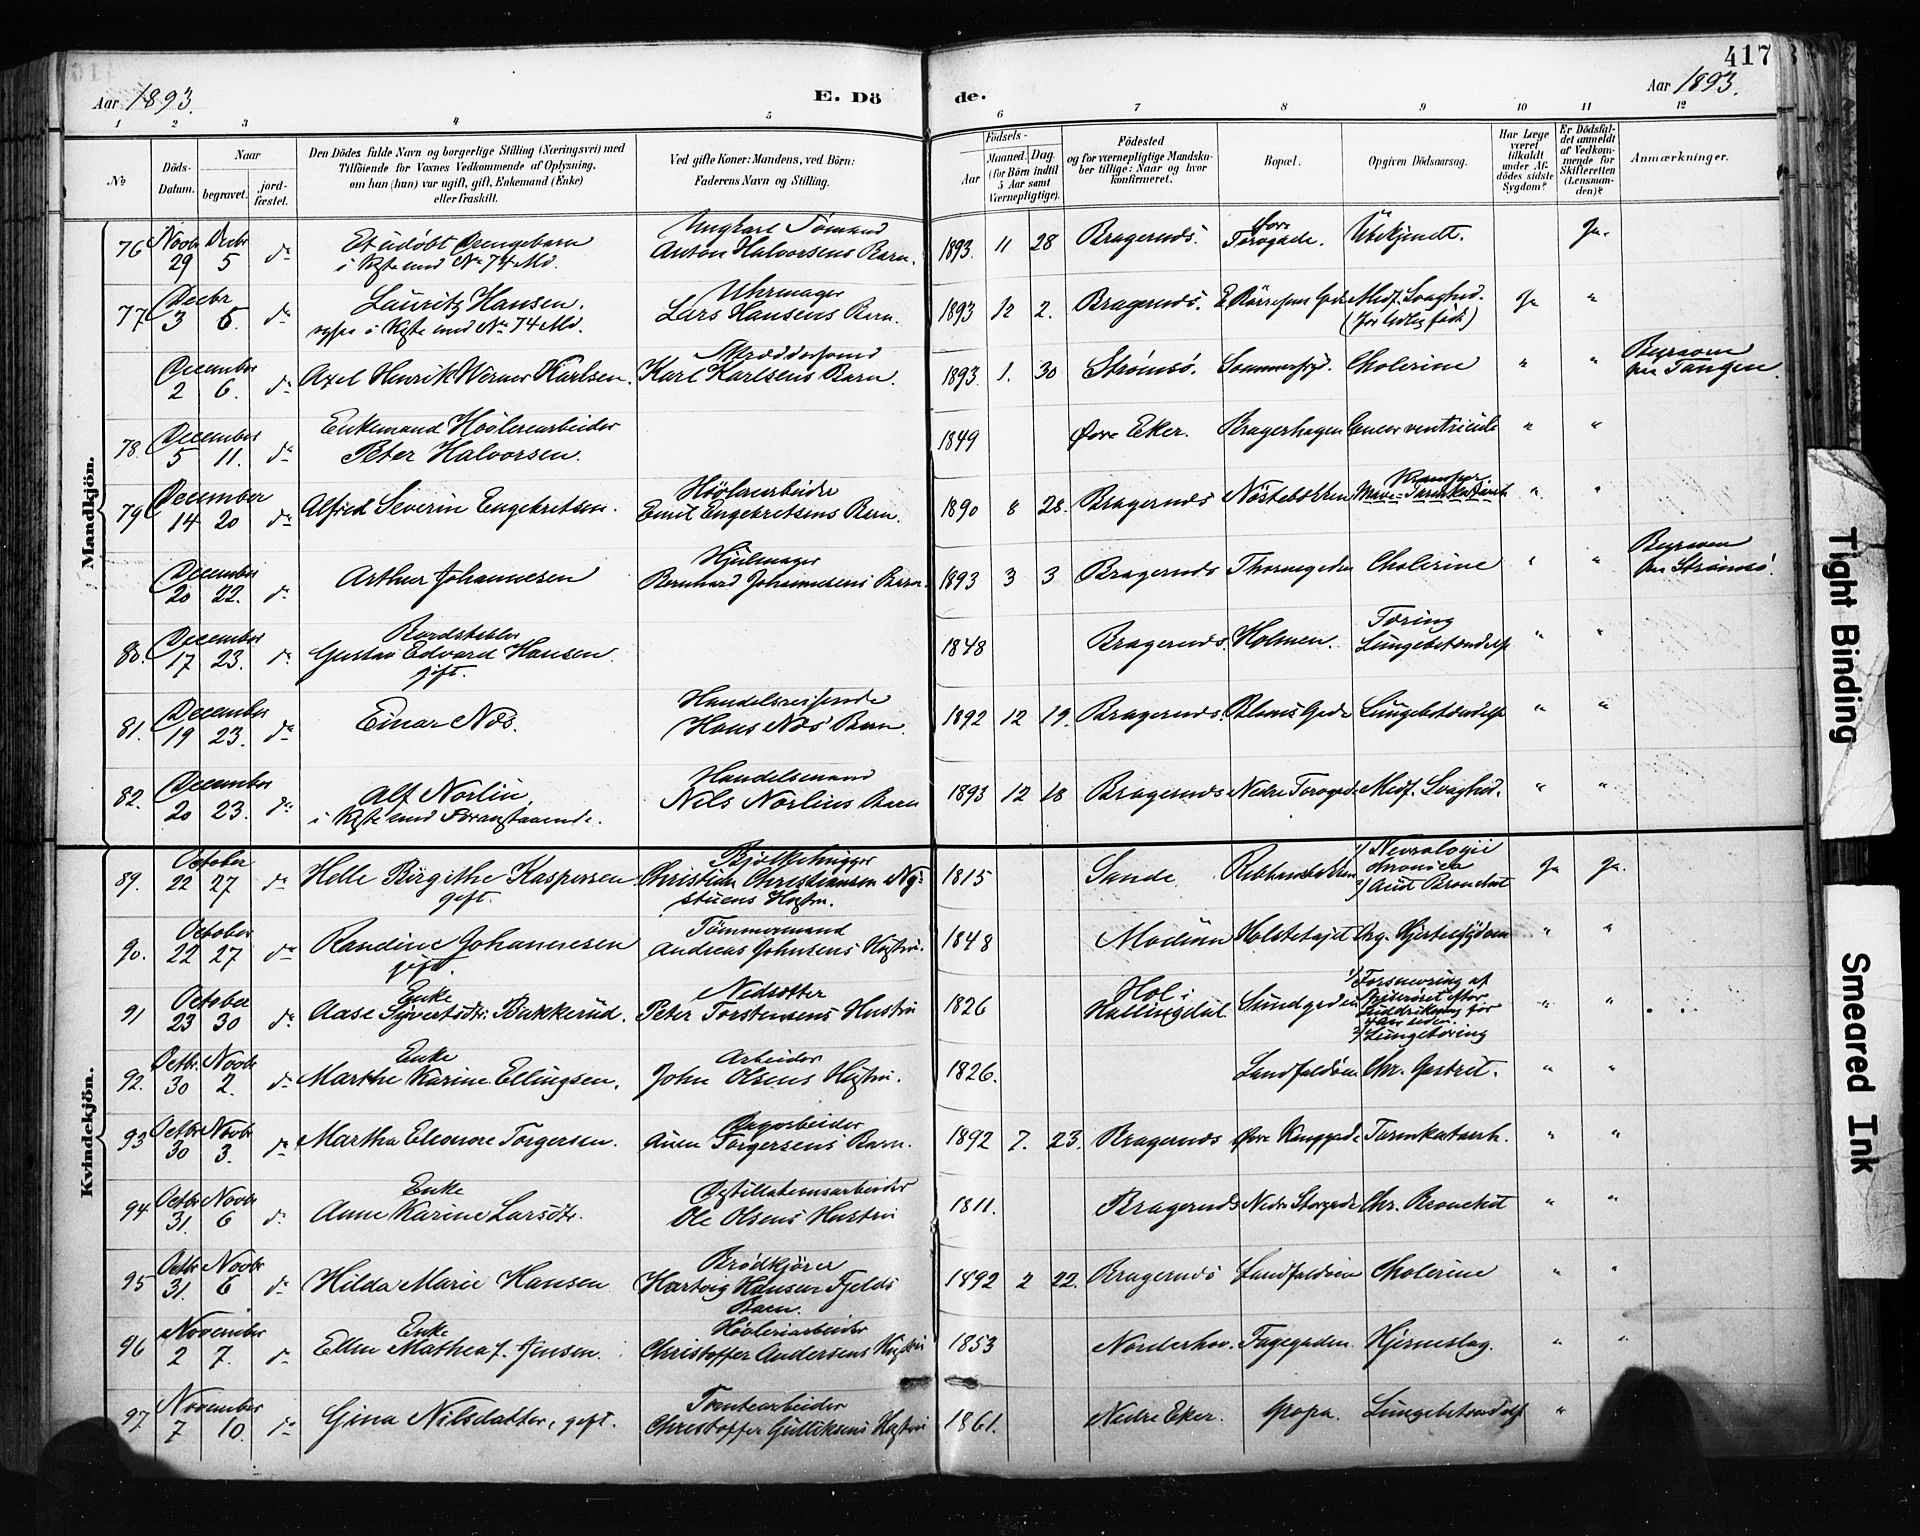 417
Aar 1893.
E. Dö
de.
Aar 1893.
1 2 3 4 5 6 7 8 9 10 11 12
No
Döds-Datum.
Naar
begravet.
jord-fæstet.
Den Dödes fulde Navn og borgerlige Stilling (Næringsvei) med
Tilföiende for Voxnes Vedkommende af Oplysning,
om han (hun) var ugift, gift, Enkemand (Enke)
eller fraskilt.
Ved gifte Koner: Mandens, ved Börn:
Faderens Navn og Stilling.
Födsels-
Aar
Maaned. Dag.
(for Börn indtil
5 Aar samt
Værnepligtige).
Födested
og for værnepligtige Mandska-
ber tillige: Naar og hvor
konfirmeret.
Bopæl.
Opgiven Dödsaarsag.
Har Læge
været
tilkaldt
under Af-
dödes sidste
Sygdom?
Er Dödsfal-
det anmeldt
af Vedkom-
mende for
Skifteretten
(Lensman-
den)?
Anmærkninger.
Mandkjön.
76 Novbr 29 Decbr 5 do Et udøbt Drengebarn i Kiste med No 74 Md. Ungkarl Sømand Anton Halvorsens Barn. 1893 11 28 Bragernæs. Øvre Torvgade. Ubekjendt. Ja.
77 Decbr 3 6. do Lauritz Hansen. i Kiste med No 74 Md. Uhrmager Lars Hansens Barn. 1893 12 2. Bragernæs. Medf. Svaghed. (for tidlig født) Ja "
December 2 6. do Axel Henrik Werner Karlsen. Skræddersvend Karl Karlsens Barn. 1893. 1. 30 Strømsø. Cholerine " " Begraven paa Tangen.
78. December 5 11. do Enkemand Høvleriarbeider Peter Halvorsen. 1849 Øvre Eker. Bragerhagen Cancer ventriculi " "
79 December 14 20 do Alfred Severin Engebretsen. Høvleriarbeider Emil Engebretsens Barn. 1890 8 28. Bragernæs Mave-Tarmkatarrh " "
December 20 22. do Arthur Johannesen Hjulmager Bernhard Johannesens Barn. 1893 3 3 Bragernæs Thornegaden Cholerine " " Begraven paa Strømsø.
80. December 17 23. do Bordstabler Gustav Edvard Hansen. gift. 1848 Bragernæs. Holmen. Tæring Lungebetændelse " "
81. December 19 23. do Einar Næs. Handelsreisende Hans Næs' Barn. 1892 12 19. Bragernæs. Gade Lungebetændelse " "
82. December 20 23. do Alf Norlin, i Kiste med Foranstaaende. Handelsmand Nils Norlins Barn 1893 12 18 Bragernæs Nedre Torvgade Medf. Svaghed. " "
Kvindekjön.
89. October 22 27 do Helle Birgithe Kaspersen gift. Christian Christiansen Ny-stuens Hustru. 1815 Sande. 1) Nevralogie chronica 2) Acut Bronchit Ja Ja.
90. October 22 27 do Randine Johannesen gift. Tømmermand Andreas Johnsens Hustru. 1848 Modum Org. Hjertesygdom " "
91 October 23 30 do Enke Aase Syvertsdtr. Bukkerud. Peter Torstensens Hustru 1826 Hol i Hallingdal. Sundgaden 1) Forsnevring af Spiserøret efter for Aar siden. 2) Lungetæring "
92. Octbr. 30 Novbr 2. do Enke Marthe Karine Ellingsen. Arbeider John Olsens Hustru. 1826. Landfaldøen Chr. Gastrit. " "
93 Octbr 30 Novbr 3. do Martha Eleonore Torgersen. Dagarbeider Torgersens Barn. 1892 7. 23. Bragernæs Tarmkatarrh. " "
94. Octbr 31. Novbr 6 do Enke Anne Karine Larsdtr. Destillationsarbeider Ole Olsens Hustru 1811. Bragernæs Nedre Storgade Chr. Bronchit " "
95 Octbr 31. Novbr 6 do Hilda Marie Hansen Brødkjører Hartvig Hansen Fjelds Barn. 1892 2 22. Bragernæs Landfaldøen Cholerine " "
96 November 2 7. do Enke Ellen Mathea J. Jensen. Høvleriarbeider Christoffer Andersens Hustru 1853 Norderhov. Fagegaden Hjerneslag. " "
97. November 7 10. do Gina Nilsdatter, gift. Tomtearbeider Christoffer Gulliksens Hustru 1861. Nedre Eker. Gropa. Lungebetændelse "
Tight Binding
Smeared Ink